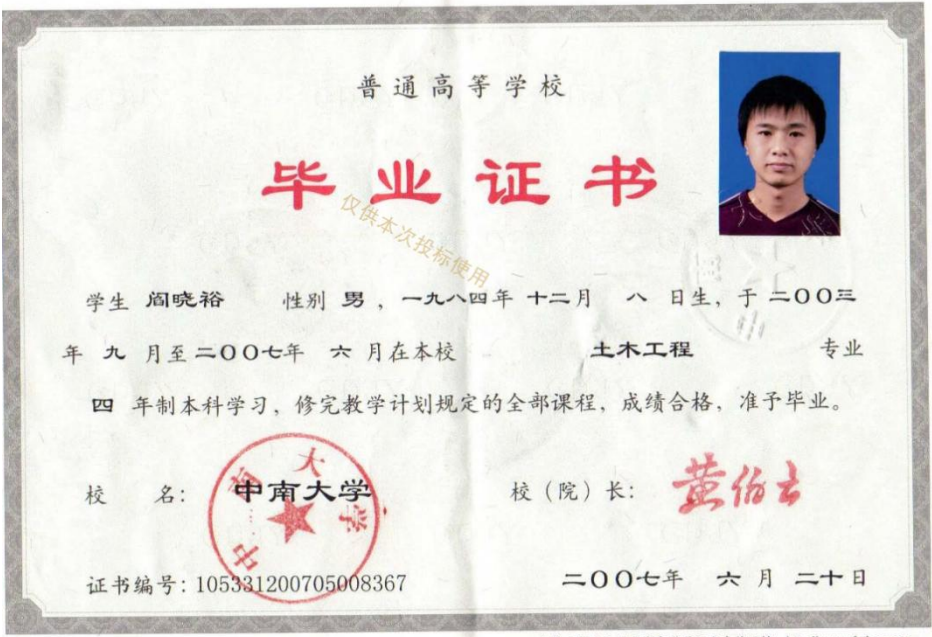 普通高等学校
毕业证书
仅供本次投标使用
学生 阎晓裕 性别 男，一九八四年 十二月 八 日生，于 二〇〇三
年 九 月至 二〇〇七年 六 月在本校 土木工程 专业
四 年制本科学习，修完教学计划规定的全部课程，成绩合格，准予毕业。
校 名： 中南大学
中南大学
校（院）长： 黄伯云
证书编号：105331200705008367
二〇〇七年 六 月 二十日